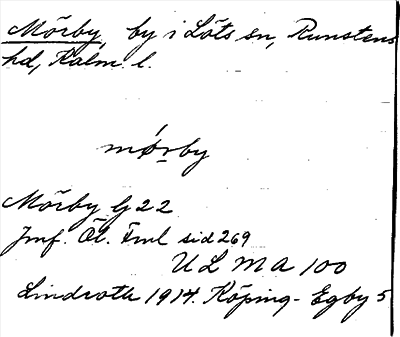 Mörby, by i Löts sn, Runstens
hd, Kalm. l.
mørby
Mörby G 22
Jmf. Öl. Fml sid 269
ULMA 100
Lindroth 1914. Köping-Egby 5